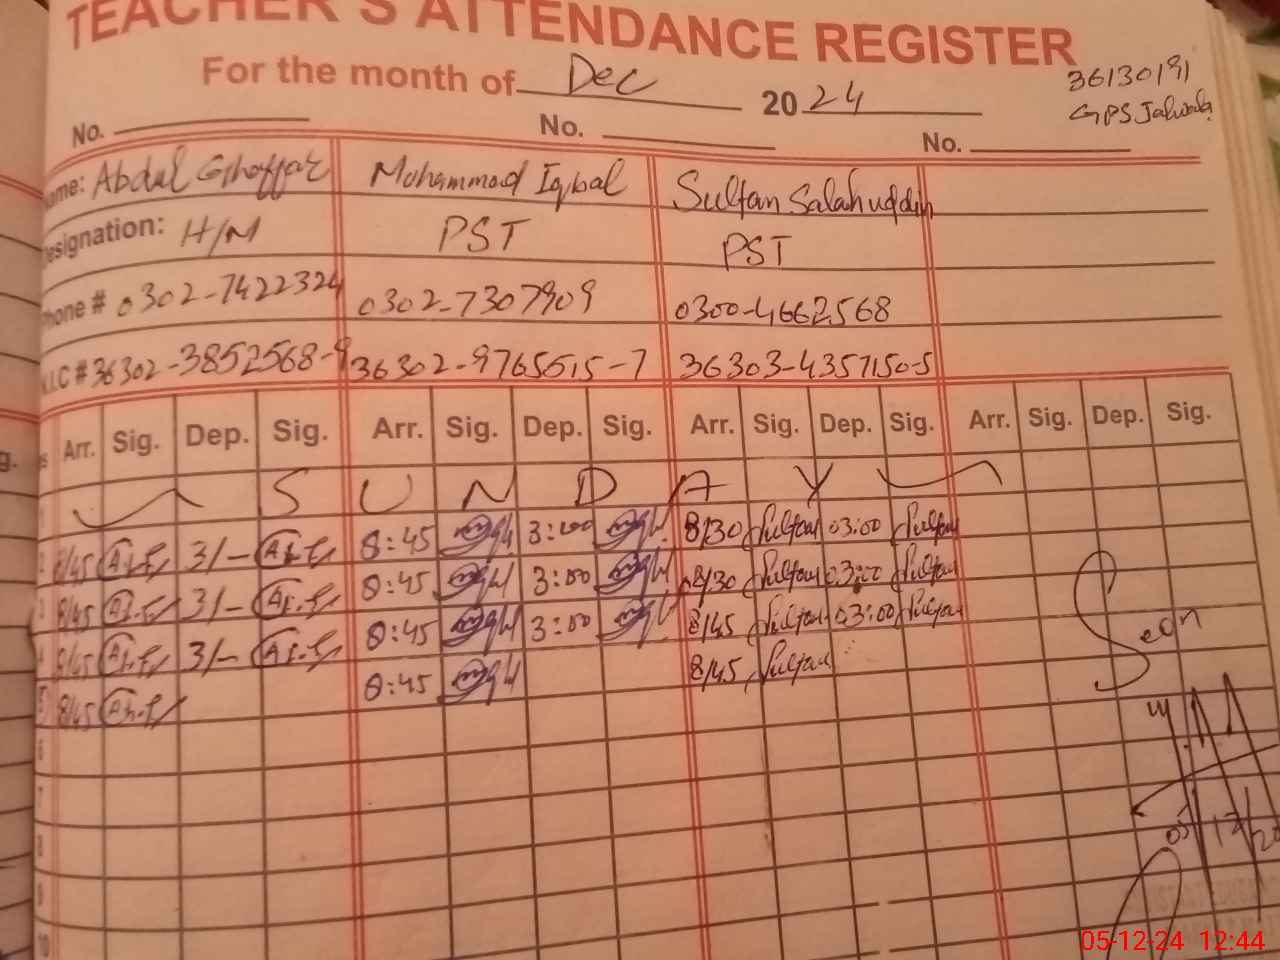 TEACHER'S ATTENDANCE REGISTER
For the month of Dec 2024
36130191
GPS
No. No. No.
Name: Abdul Ghaffar Mohammad Iqbal Sultan Salahuddin
Designation: H/M PST PST
Phone # 0302-7422324 0302-7307909 0300-4662568
N.I.C # 36302-3852568-9 36302-9765515-7 36303-4357150-5
Arr. Sig. Dep. Sig. Arr. Sig. Dep. Sig. Arr. Sig. Dep. Sig. Arr. Sig. Dep. Sig.
1 SUNDAY
2 8/45 3/- 8:45 3:00 8/30 Sultan 03:00 Sultan
3 8/45 3/- 8:45 3:00 8/30 Sultan 03:00 Sultan
4 8/45 3/- 8:45 3:00 8/45 Sultan 03:00 Sultan
5 8/45 8:45 8/45 Sultan
Seen
6
7
8
05/12/24
9
10
05-12-24 12:44